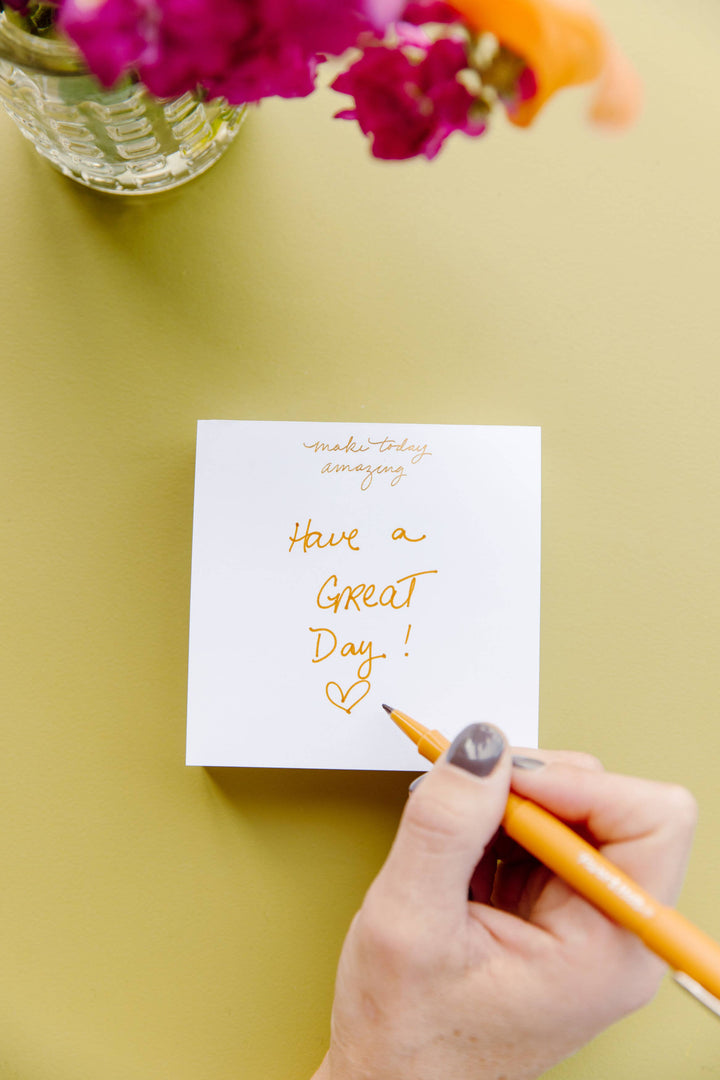 make today
amazing
Have a
GReaT
Day!